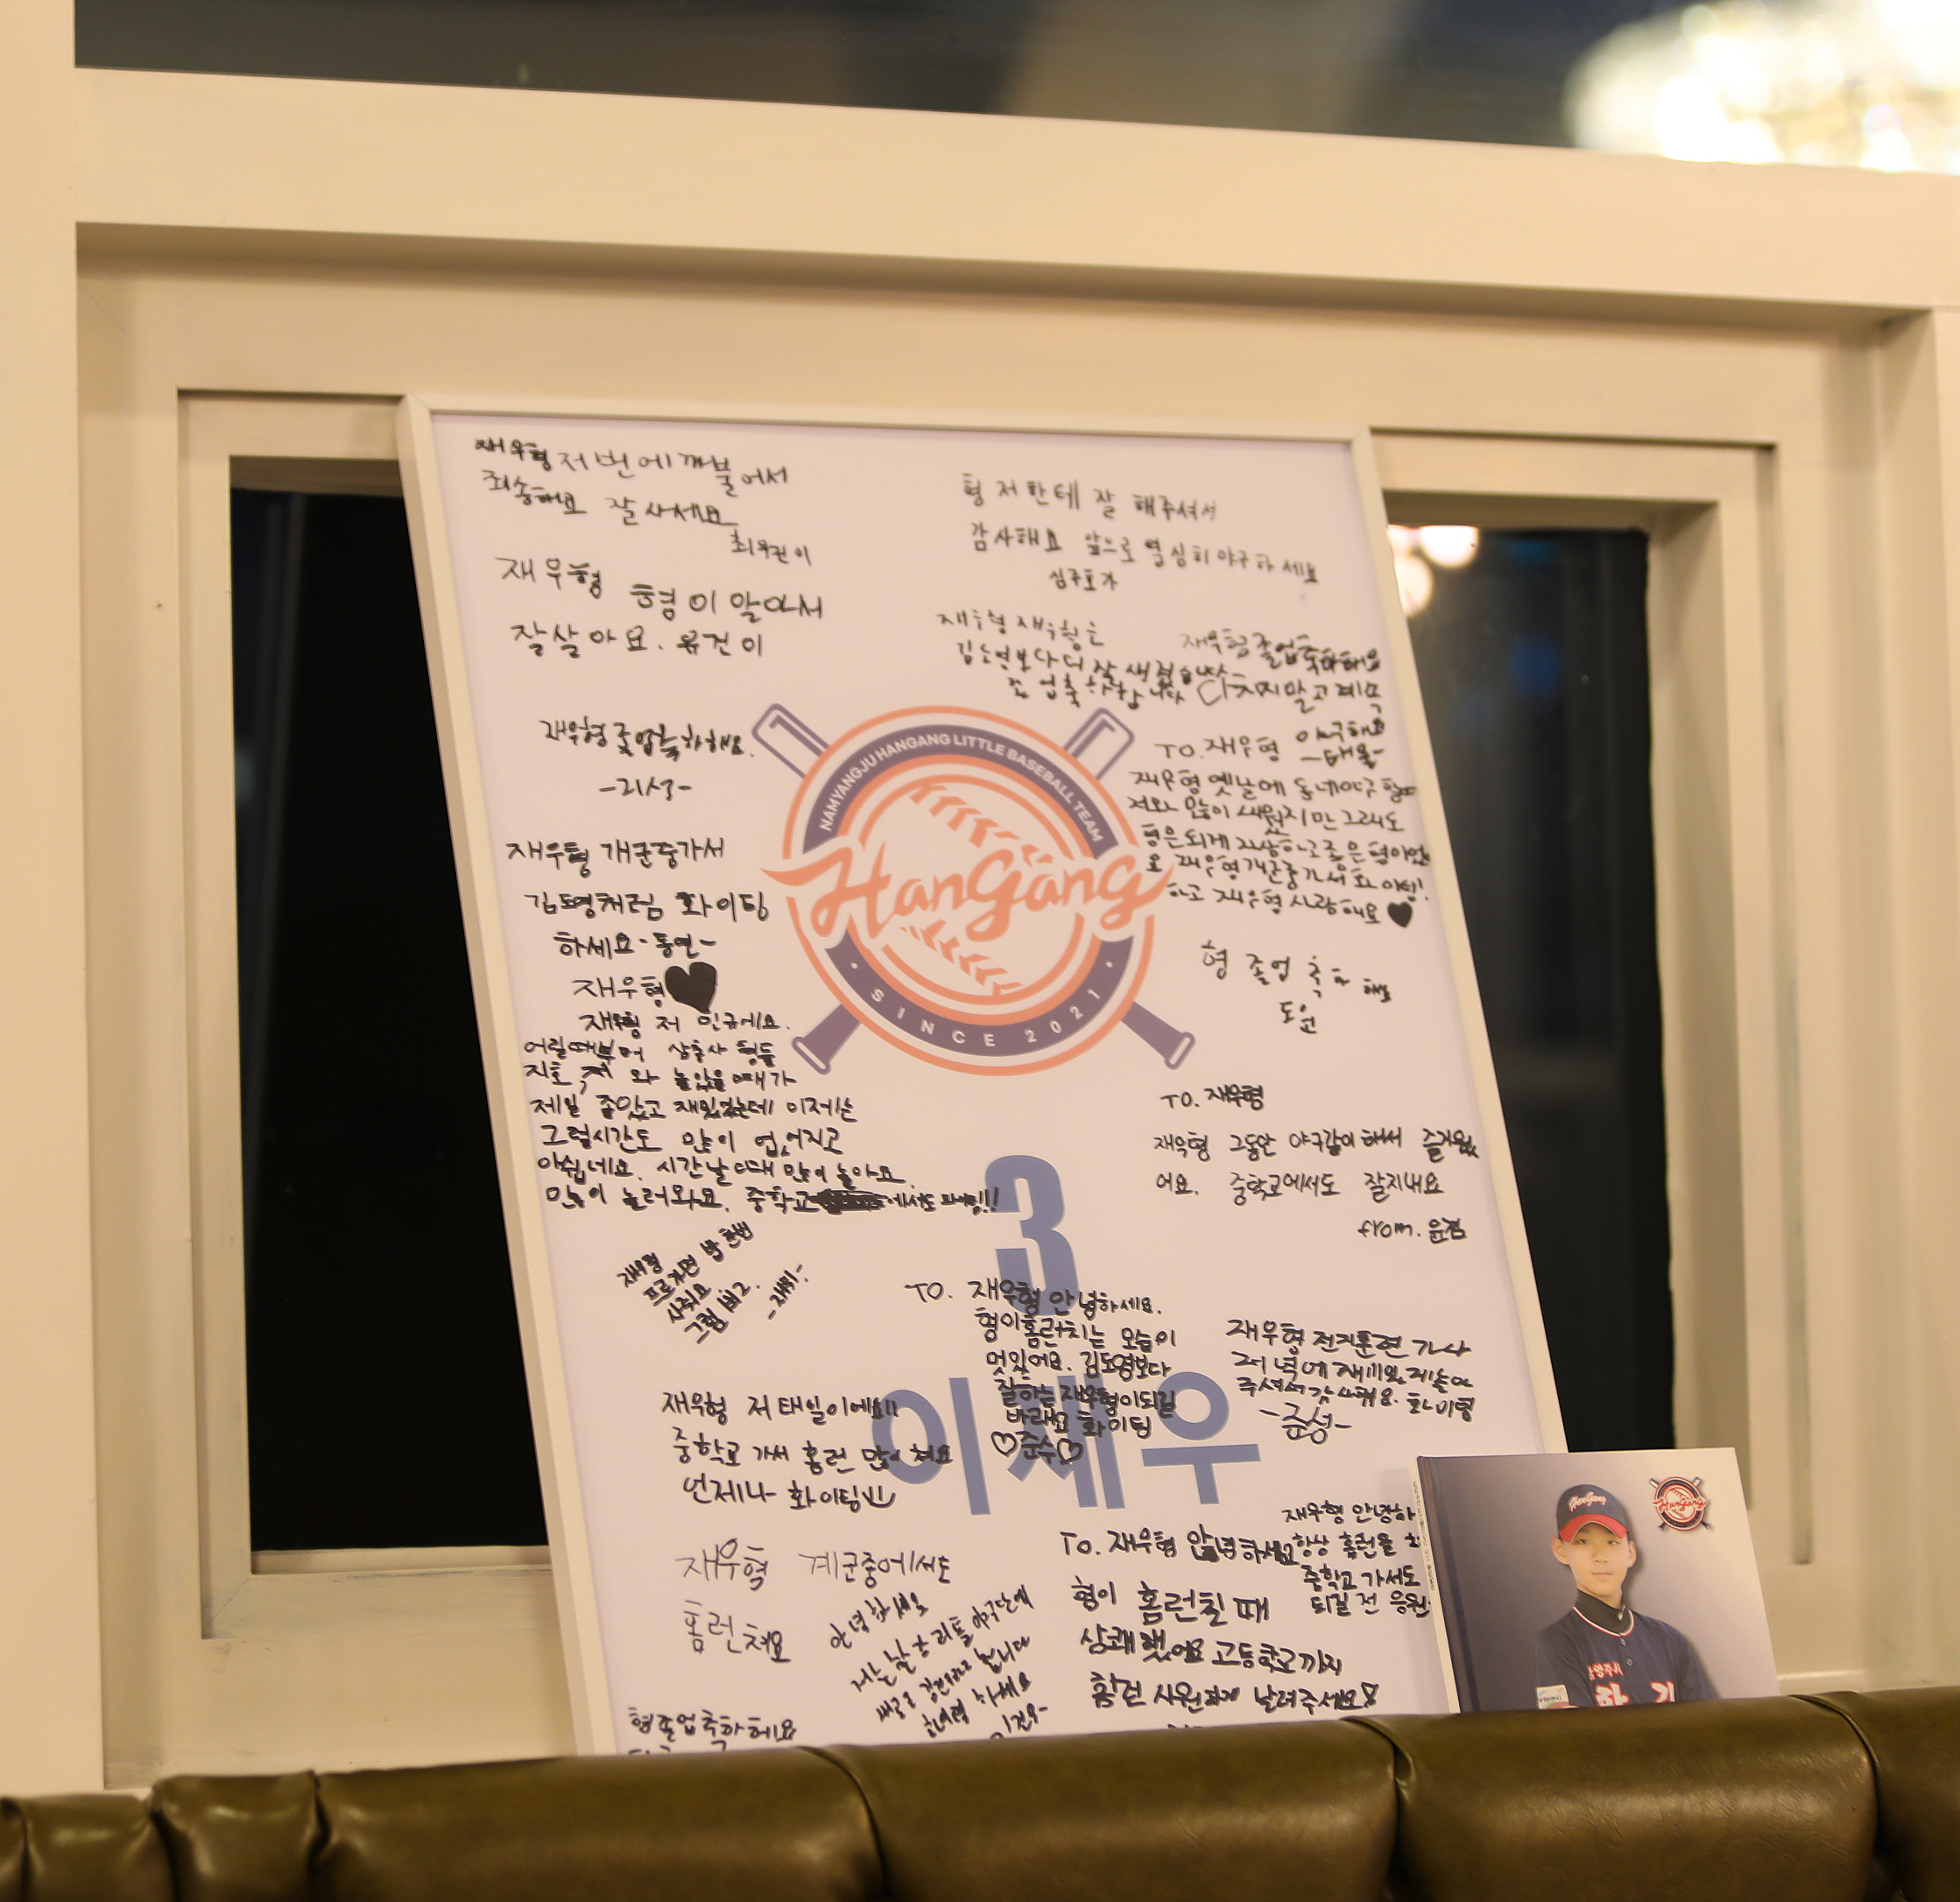 재우형 저번에 까불어서
죄송해요 잘사세요
최우권이
재우형 형이 알아서
잘살아요. 유건이
재우형 졸업축하해요.
-리서-
재우형 개군중가서
김도영처럼 화이팅
하세요-동연-
재우형♥
재우형 저 민규에요.
어릴때부터 삼총사 형들
지호, 저와 놀았을때가
제일 좋았고 재밌었는데 이제는
그럴시간도 많이 없어지고
아쉽네요. 시간날때 많이 놀아요.
많이 놀러와요. 중학교에서도 파이팅!!
재우형
프로가면 밥 한번
사줘요.
그럼 ㅂ2.
형 저한테 잘 해주셔서
감사해요 앞으로 열심히 야구하세요
심규호가
재우형 재우형은
김도영보다 더 잘생겼습니다
졸업축하합니다
재우형 졸업축하해요
다치지말고 계속
야구해요
-태율-
TO.재우형
재우형 옛날에 동네야구 할때
저와 많이 싸웠지만 그래도
형은 되게 자상하고 좋은 형이었
요 재우형 개군중가서 화이팅!
하고 재우형 사랑해요♥
NAMYANGJU HANGANG LITTLE BASEBALL TEAM
HanGang
SINCE 2021
형 졸업 축하해요
도원
TO. 재우형
재우형 그동안 야구같이 해서 즐거웠
어요. 중학교에서도 잘지내요
from. 윤겸
3
이재우
TO. 재우형 안녕하세요.
형이홈런치는 모습이
멋있어요. 김도영보다
잘하는 재우형이되길
바래요 화이팅
♡준수♡
재우형 전지훈련 가서
저녁에 재미있게 놀아
주셔서 감사해요. 화이팅
-준성-
재우형 저 태일이에요!!
중학교 가서 홈런 많이 쳐요
언제나 화이팅
재우형 계군중에서도
홈런쳐요
안녕하세요
저는 남한리틀야구단에
새로 입단하게 됩니다
To. 재우형 안녕하세요
형이 홈런칠 때
상쾌했어요 고등학교까지
홈런 시원하게 날려주세요
재우형 안녕하
항상 홈런을
중학교 가서도
되길 전 응원
형졸업축하해요
HanGang
HanGang
남양주시
한강